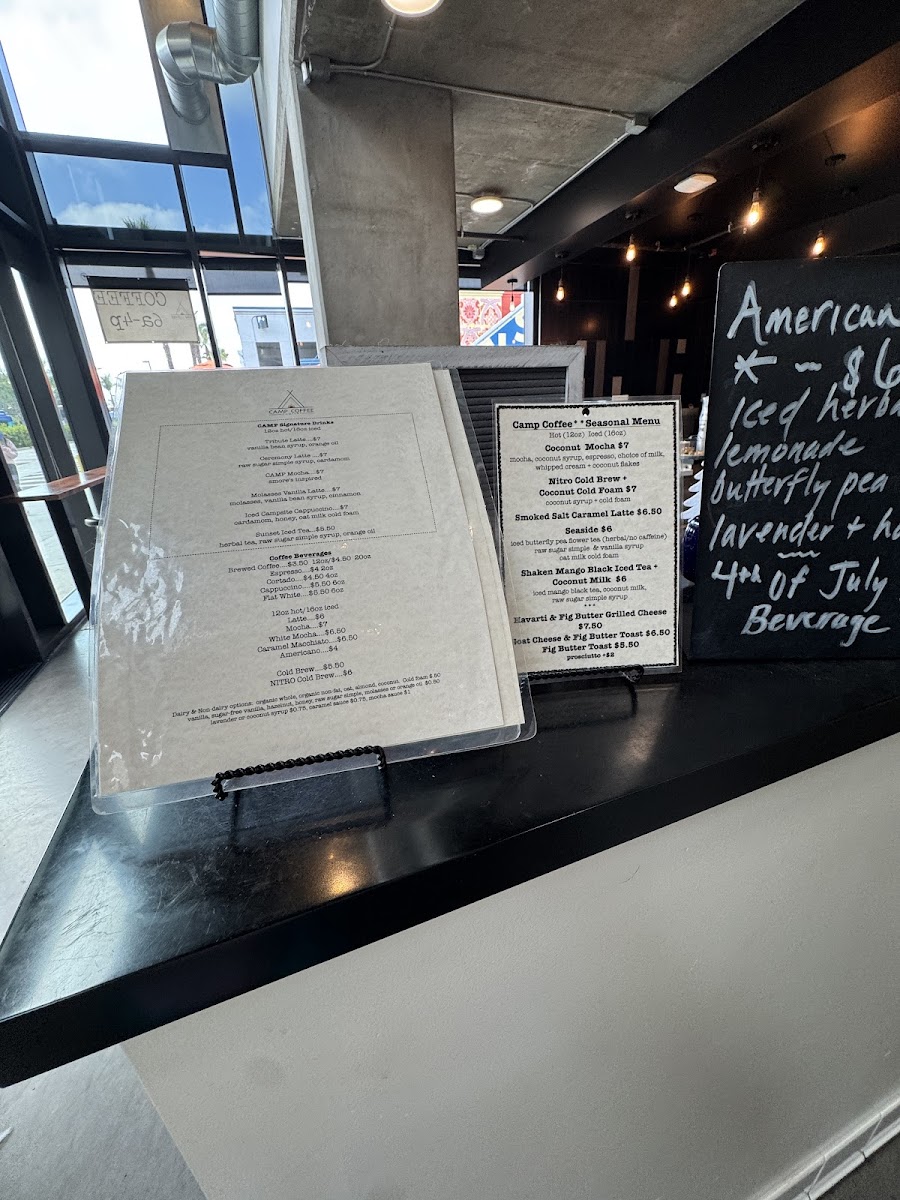 COFFEE
6a-4p
CAMP COFFEE
CAMP Signature Drinks
12oz hot/16oz iced
Tribute Latte....$7
vanilla bean syrup, orange oil
Ceremony Latte ....$7
raw sugar simple syrup, cardamom
CAMP Mocha....$7
smore's inspired
Molasses Vanilla Latte....$7
molasses, vanilla bean syrup, cinnamon
Iced Campsite Cappuccino....$7
cardamom, honey, oat milk cold foam
Sunset Iced Tea...$5.50
herbal tea, raw sugar simple syrup, orange oil
Coffee Beverages
Brewed Coffee....$3.50 12oz/$4.50 20oz
Espresso....$4 2oz
Cortado....$4.50 4oz
Cappuccino....$5.50 6oz
Flat White....$5.50 6oz
12oz hot/16oz iced
Latte....$6
Mocha....$7
White Mocha....$6.50
Caramel Macchiato....$6.50
Americano....$4
Cold Brew....$5.50
NITRO Cold Brew....$6
Dairy & Non dairy options: organic whole, organic non-fat, oat, almond, coconut. Cold foam $.50
vanilla, sugar-free vanilla, hazelnut, honey, raw sugar simple, molasses or orange oil $0.50
lavender or coconut syrup $0.75, caramel sauce $0.75, mocha sauce $1
Camp Coffee**Seasonal Menu
Hot (12oz) Iced (16oz)
Coconut Mocha $7
mocha, coconut syrup, espresso, choice of milk,
whipped cream + coconut flakes
Nitro Cold Brew +
Coconut Cold Foam $7
coconut syrup + cold foam
Smoked Salt Caramel Latte $6.50
Seaside $6
iced butterfly pea flower tea (herbal/no caffeine)
raw sugar simple & vanilla syrup
oat milk cold foam
Shaken Mango Black Iced Tea +
Coconut Milk $6
iced mango black tea, coconut milk,
raw sugar simple syrup
***
Havarti & Fig Butter Grilled Cheese
$7.50
Goat Cheese & Fig Butter Toast $6.50
Fig Butter Toast $5.50
prosciutto +$2
American
* ~ $6
Iced herba
lemonade
butterfly pea
lavender + ho
4th Of July
Beverage